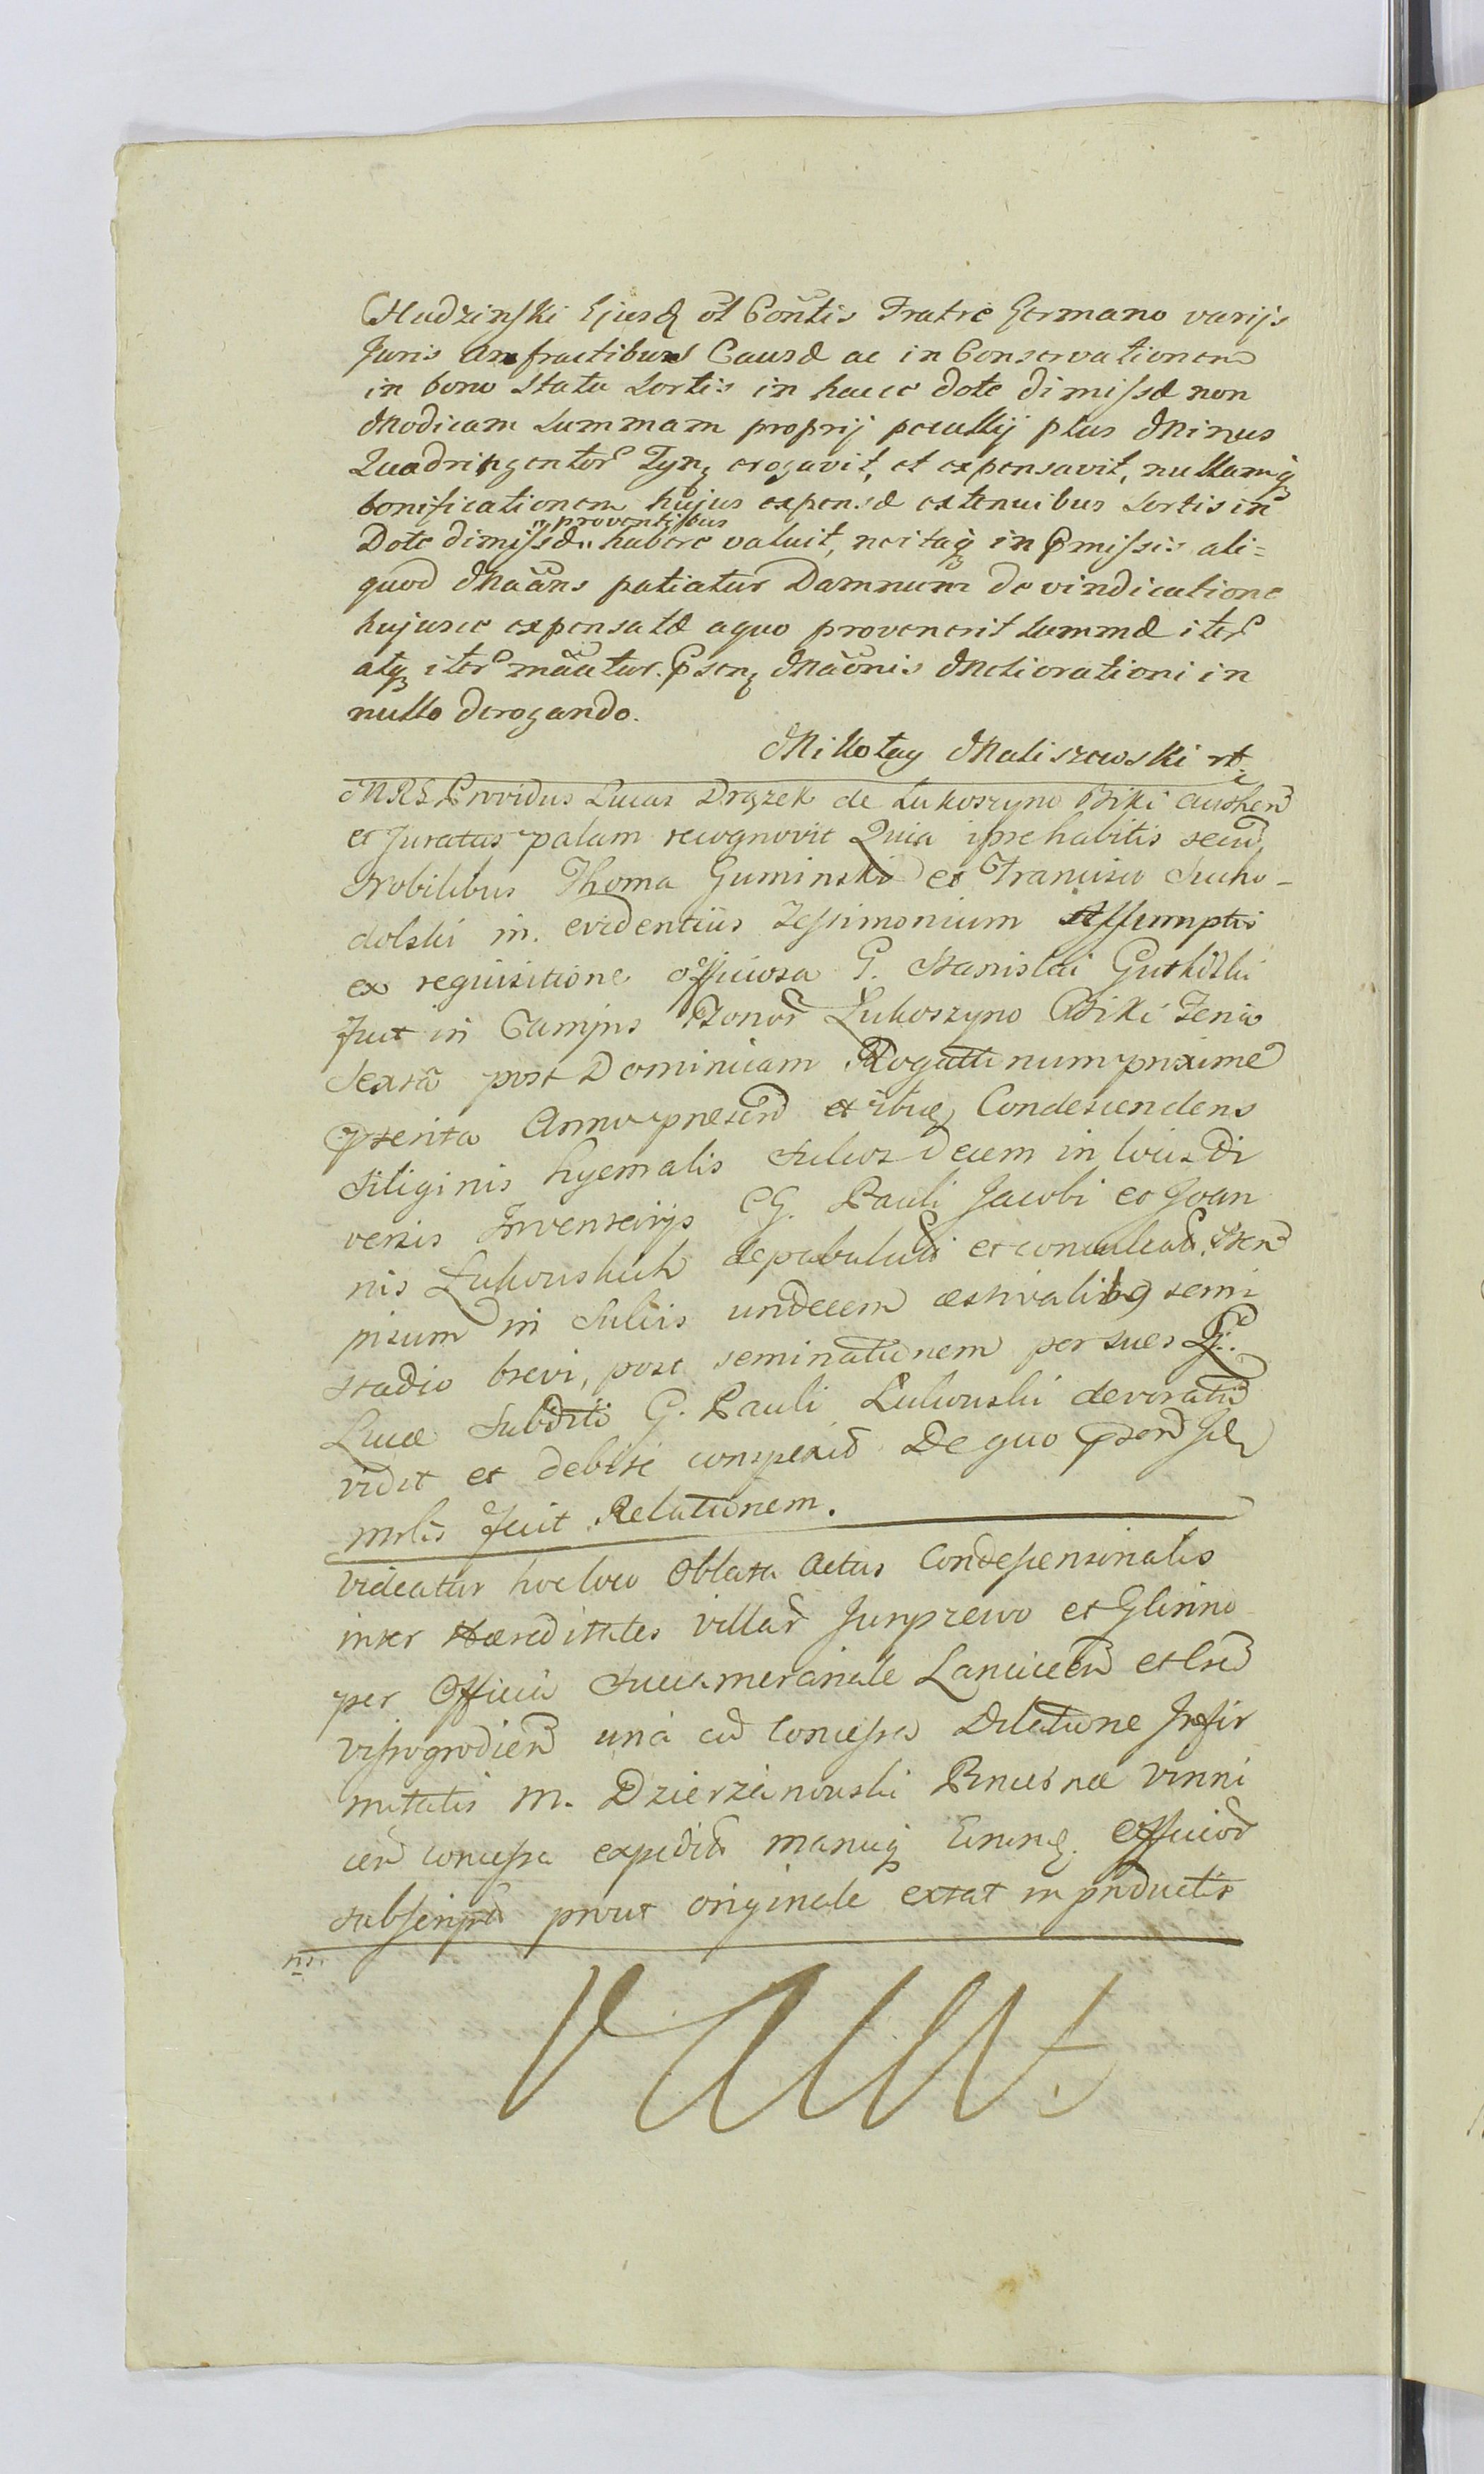 Chudzinski Ejusd olt Contis Fratre Germano varijs
Juris Amfractibus Causæ ac in Conservationem
in bono Statu Sortis in hacce dote dimissæ non
Modicam Summam proprij pecullij plus Minus
Quadringentor Tynf erogavit, et expensavit, nullamq
bonificationem hujus expensæ extenuibus Sortis in
Dote dimissæ " proventibus habere valuit, neitaq in Pmissis ali=
quod Maans patiatur Damnum de vindicatione
hujusce expensatæ aquo provenerit Summæ iter
atq iter maatur. Psenq Maonis Meliorationi in
nullo derogando.
Mikołay Maliszewski rt
MRS Providus Lucas Drązek de Lukoszyno Biki authen
et Juratus palam recognovit Quia ipse habitis secu
Nobilibus Thoma Guminski et Francisco Sucho-
dolski in evidentius Testimonium Assumptis
ex requisitione officiosa G. Stanislai Gutkoski
fuit in Campis Bonor Lukoszyno Biki Feria
Sexta post Dominicam Rogationum proxime
pterita Anno presen et ibiq Condescendens
Siliginis hyemalis Sulcos decem in locis di
versis Inventis GG. Pauli Jacobi et Joan
nis Lukouskich depabulat et conculcat, Item
pisum in Sulcis undecem æstivalibq semi
stadio brevi, post seminationem per sues L.
Lucæ Subditi G. Pauli Lukouski devoratu
vidit et debite conspexit De quo psen sil
mlis fecit Relationem.
Videatur hoc loco Oblata Actus Condescensionalis
inter Hæreditates villar Junprzewo et Glinno
per Officiu Succamerariale Lancicien et Cre
vissogrodien una cu Concessa Dilatione Infir
mitatis M. Dzierzanouski Pincernæ Vinni
cen concessa expedit manuq Eminq. officior
subscript prout originale extat in productis
ns.
Vacat